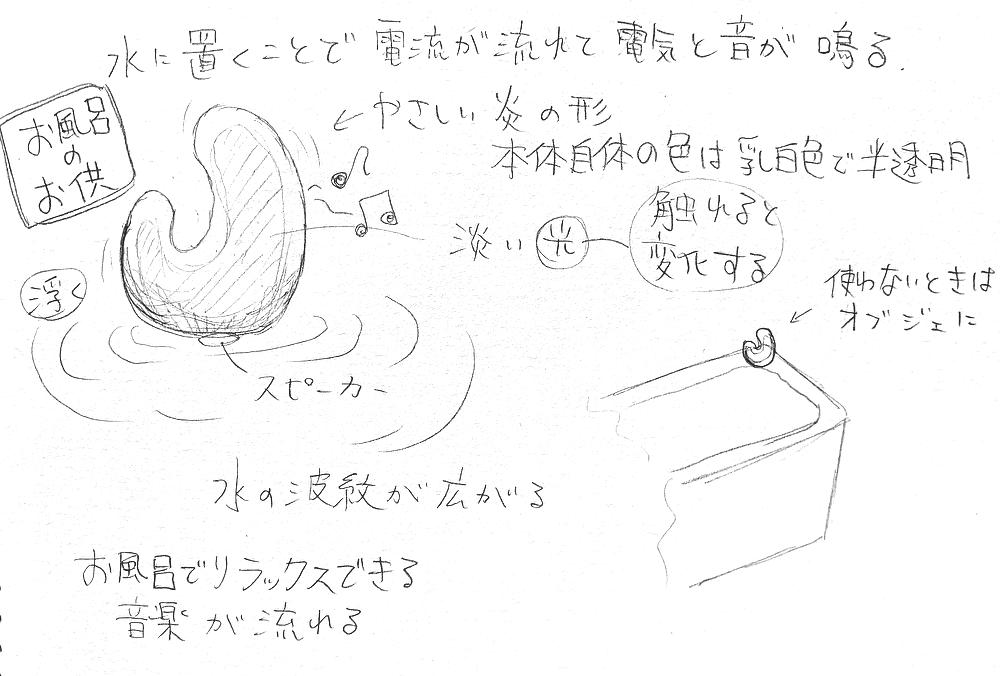 水に置くことで電流が流れて電気と音が鳴る.
お風呂
の
お供
やさしい炎の形
本体自体の色は乳白色で半透明
淡い光
触れると
変化する
浮く
使わないときは
オブジェに
スピーカー
水の波紋が広がる
お風呂でリラックスできる
音楽が流れる